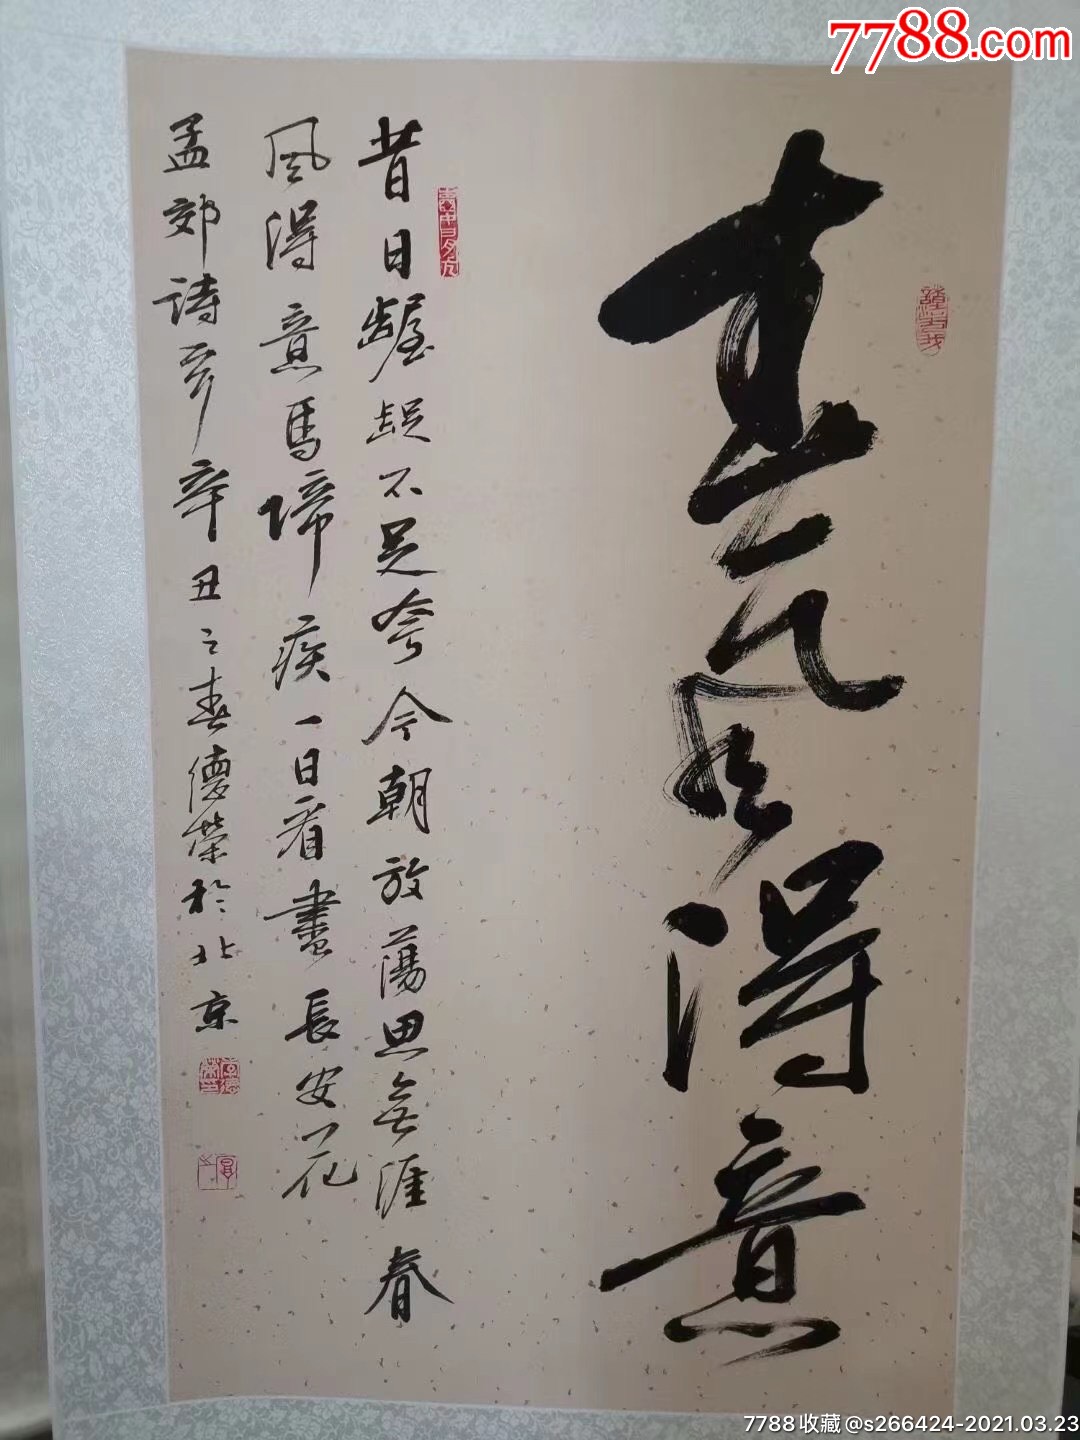 7788.com
春風得意
昔日齷齪不足夸今朝放蕩思無涯春
風得意馬蹄疾一日看盡長安花
孟郊詩辛丑之春德榮於北京
李德榮印
7788收藏@s266424-2021.03.23